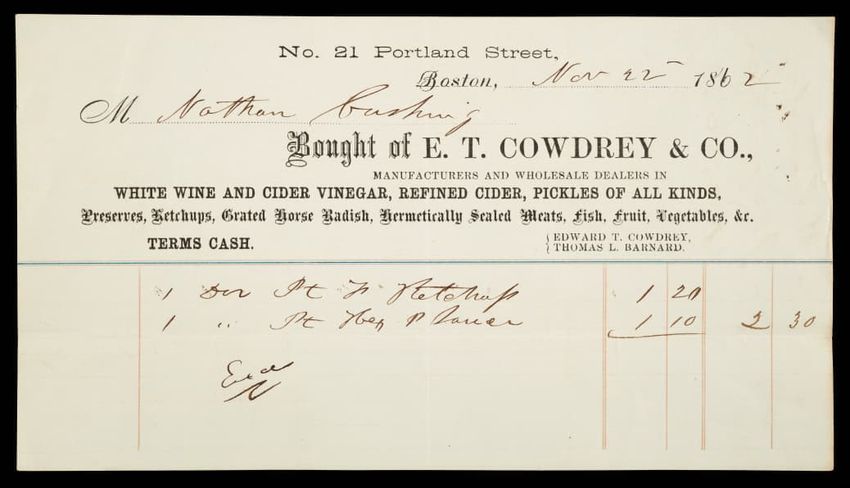 No. 21 Portland Street,
Boston, Nov 22 1862
M Nathan Cushing
Bought of E. T. COWDREY & CO.,
MANUFACTURERS AND WHOLESALE DEALERS IN
WHITE WINE AND CIDER VINEGAR, REFINED CIDER, PICKLES OF ALL KINDS,
Preserves, Ketchups, Grated Horse Radish, Hermetically Sealed Meats, Fish, Fruit, Vegetables, &c.
TERMS CASH.
EDWARD T. COWDREY,
THOMAS L. BARNARD.
1 Doz Pt Ketchup 1 20
1 " Pt P Sauce 1 10 2 30